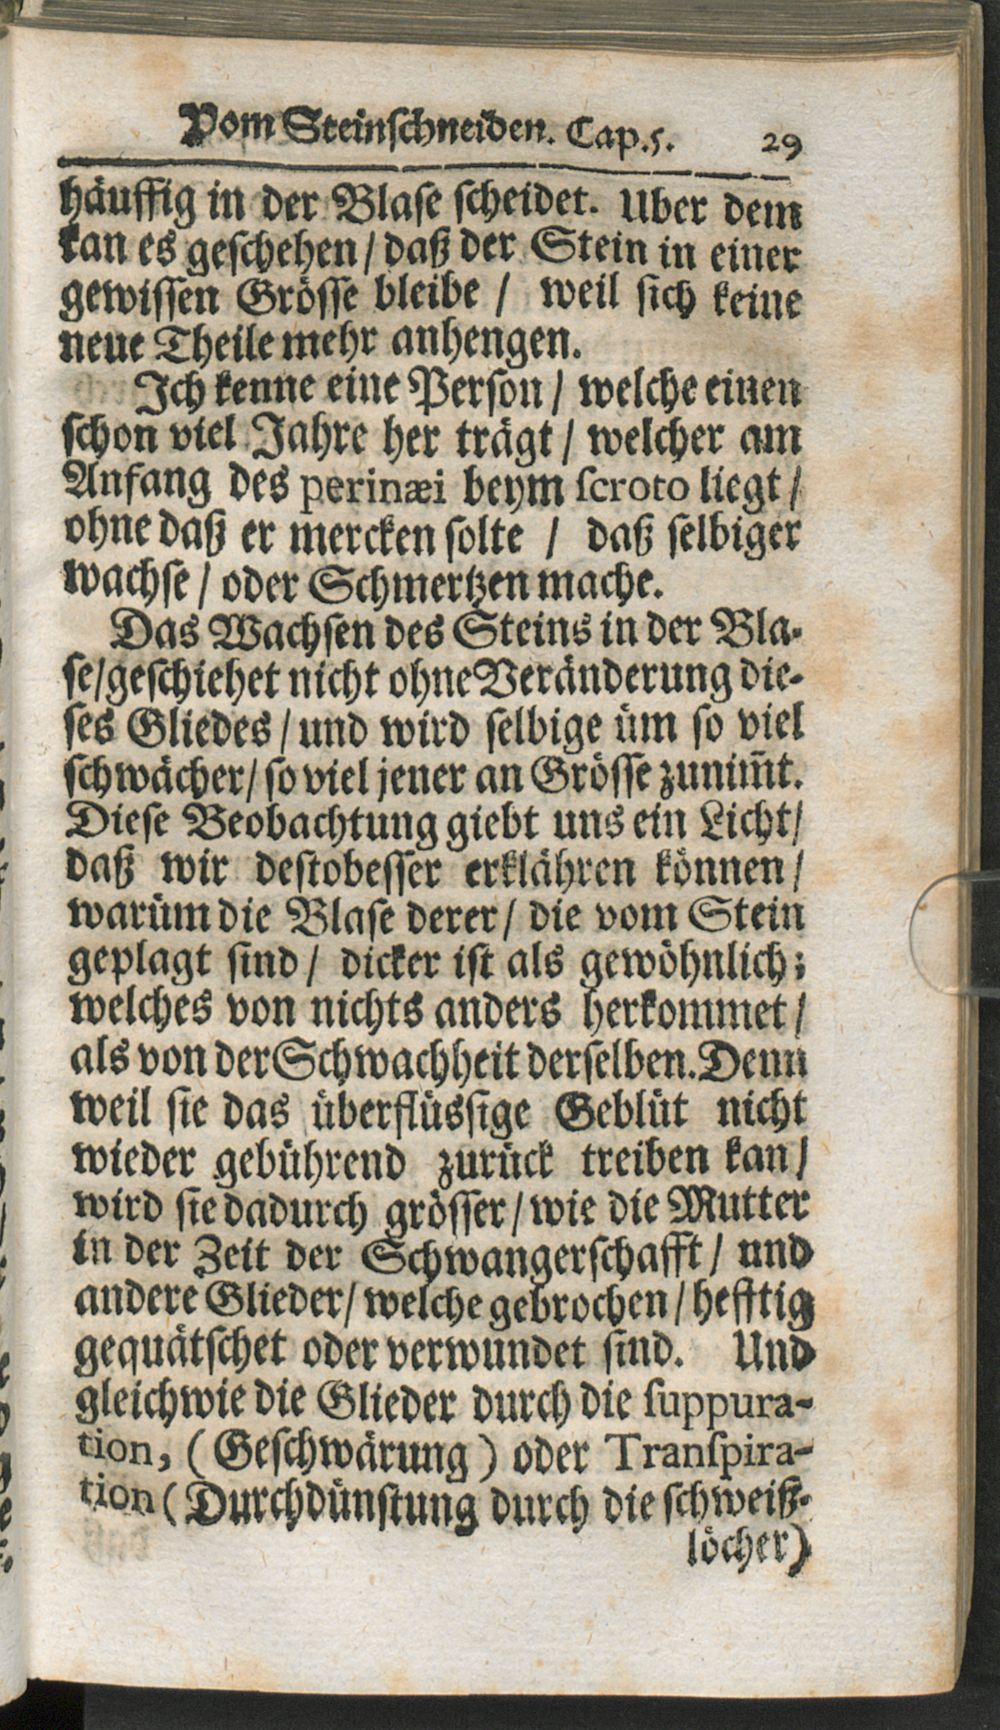 Vom Steinschneiden. Cap. 5. 29
häuffig in der Blase scheidet. Uber dem
kan es geschehen / daß der Stein in einer
gewissen Grösse bleibe / weil sich keine
neue Theile mehr anhengen.
Ich kenne eine Person / welche einen
schon viel Jahre her trägt / welcher am
Anfang des perinæi beym scroto liegt /
ohne daß er mercken solte / daß selbiger
wachse / oder Schmertzen mache.
Das Wachsen des Steins in der Bla-
se / geschiehet nicht ohne Veränderung die-
ses Gliedes / und wird selbige üm so viel
schwächer / so viel jener an Grösse zunim̅t.
Diese Beobachtung giebt uns ein Licht /
daß wir destobesser erklähren können /
warüm die Blase derer / die vom Stein
geplagt sind / dicker ist als gewöhnlich;
welches von nichts anders herkommet /
als von der Schwachheit derselben. Denn
weil sie das überflüssige Geblüt nicht
wieder gebührend zurück treiben kan /
wird sie dadurch grösser / wie die Mutter
in der Zeit der Schwangerschafft / und
andere Glieder / welche gebrochen / hefftig
gequätschet oder verwundet sind. Und
gleichwie die Glieder durch die suppura-
tion, (Geschwärung) oder Transpira-
tion (Durchdünstung durch die schweiß-
löcher)